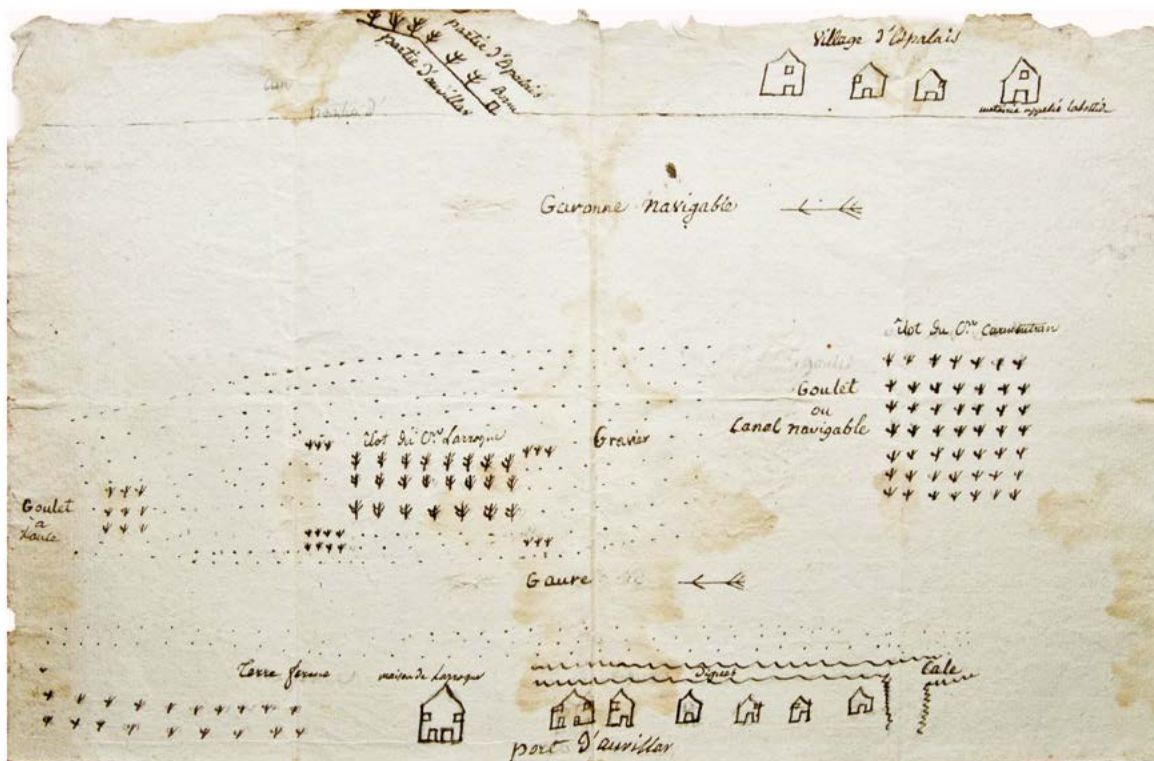 partie d'Espalais
partie d'auvillar
Borne
Village d'Espalais
metairie appelée Labastide
partie d'
Garonne navigable
îlot du C.en
Goulet
ou
Canal navigable
îlot du C.en Larroque
Gravier
Goulet
à
Gaure
Terre ferme
maison de Larroque
Digues
Cale
port d'auvillar